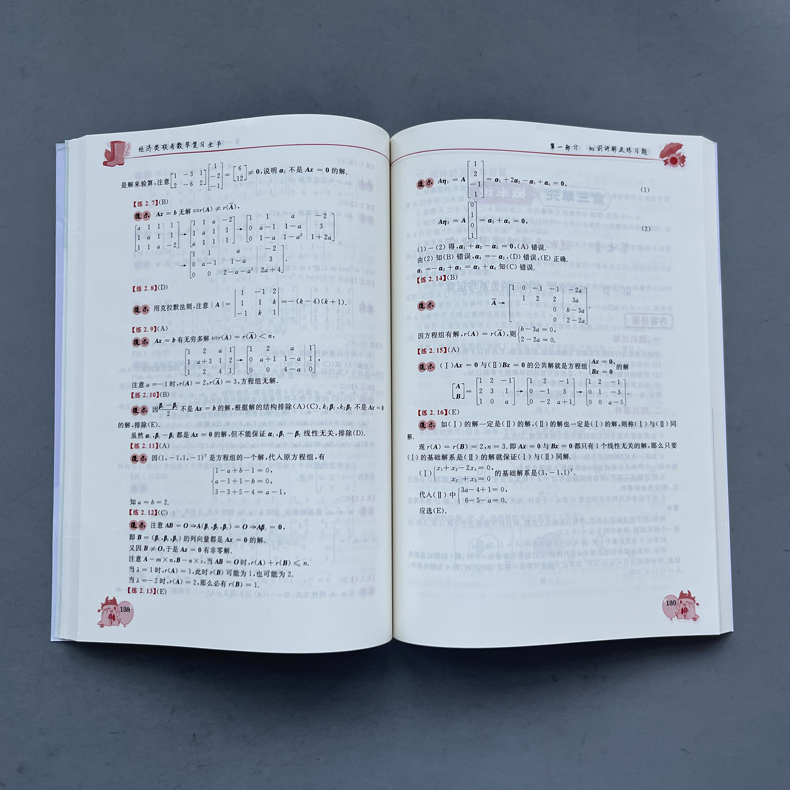 经济类联考数学复习全书
是解来验算,注意[1 -3 1; 2 -6 2][1; -2; -1]=[6; 12]≠0,说明 α₁ 不是 Ax=0 的解.
【练 2.7】(B)
提示 Ax=b 无解⇔r(A)≠r(Ā),
[a 1 1 1; 1 a 1 1; 1 1 a -2]→[1 1 a -2; 1 a 1 1; a 1 1 1]→[1 1 a -2; 0 a-1 1-a 3; 0 1-a 1-a² 1+2a]
→[1 1 a -2; 0 a-1 1-a 3; 0 0 2-a-a² 2a+4].
【练 2.8】(D)
提示 用克拉默法则,注意|A|=|1 -1 2; 1 1 k; -1 k 1|=-(k-4)(k+1).
【练 2.9】(A)
提示 Ax=b 有无穷多解⇔r(A)=r(Ā)<n,
[1 2 a 1; 1 a+3 1 2; 1 2 4 1]→[1 2 a 1; 0 a+1 1-a 1; 0 0 4-a 0],
注意 a=-1 时,r(A)=2,r(Ā)=3,方程组无解.
【练 2.10】(B)
提示 因(β₁-β₂)/2 不是 Ax=b 的解,根据解的结构排除(A)(C),k₁β₁+k₂β₂ 不是 Ax=0
的解,排除(E).
虽然 α₁,β₁-β₂ 都是 Ax=0 的解,但不能保证 α₁,β₁-β₂ 线性无关,排除(D).
【练 2.11】(A)
提示 因(1,-1,1,-1)ᵀ 是方程组的一个解,代入原方程组,有
{1-a+b-1=0,
a-1+1-b=0,
3-3+5-4=a-1,
知 a=b=2.
【练 2.12】(C)
提示 注意 AB=O⇒A(β₁,β₂,β₃)=O⇒Aβⱼ=0,
即 B=(β₁,β₂,β₃)的列向量都是 Ax=0 的解.
又因 B≠O,于是 Ax=0 有非零解.
注意 A-m×n,B-n×s,当 AB=O 时,r(A)+r(B)≤n.
当 λ=1 时,r(A)=1,此时 r(B)可能为 1,也可能为 2.
当 λ=-2 时,r(A)=2,那么必有 r(B)=1.
【练 2.13】(E)
138
第一部分 知识讲解及练习题
提示 Aη₁=A[1; 2; -1; 1]=α₁+2α₂-α₃+α₄=0, (1)
Aη₂=A[0; 1; 0; 1]=α₂+α₄=0, (2)
(1)-(2)得,α₁+α₂-α₃=0,(A)错误.
由(2)知(B)错误,α₂=-α₄,(D)错误,(E)正确.
α₁=-α₂+α₃=α₃+α₄ 知(C)错误.
【练 2.14】(B)
提示 Ā→[1 0 -1 -1 -2a; 1 2 2 3a; 0 b-3a; 0 2-2a].
因方程组有解,r(A)=r(Ā),则{b-3a=0,
2-2a=0.
【练 2.15】(A)
提示 (Ⅰ)Ax=0 与(Ⅱ)Bx=0 的公共解就是方程组{Ax=0, Bx=0 的解
[A; B]=[1 2 -1; 2 3 1; 1 0 a]→[1 2 -1; 0 -1 3; 0 -2 a+1]→[1 2 -1; 0 1 -3; 0 0 a-5].
【练 2.16】(E)
提示 如(Ⅰ)的解一定是(Ⅱ)的解,(Ⅱ)的解也一定是(Ⅰ)的解,则称(Ⅰ)与(Ⅱ)同
解.
现 r(A)=r(B)=2,n=3.即 Ax=0 与 Bx=0 都只有 1 个线性无关的解,那么只要
(Ⅰ)的基础解系是(Ⅱ)的解就保证(Ⅰ)与(Ⅱ)同解.
(Ⅰ){x₁+x₂-2x₃=0, x₂+x₃=0 的基础解系是(3,-1,1)ᵀ.
代入(Ⅱ)中{3a-4+1=0,
6-5-a=0.
应选(E).
139